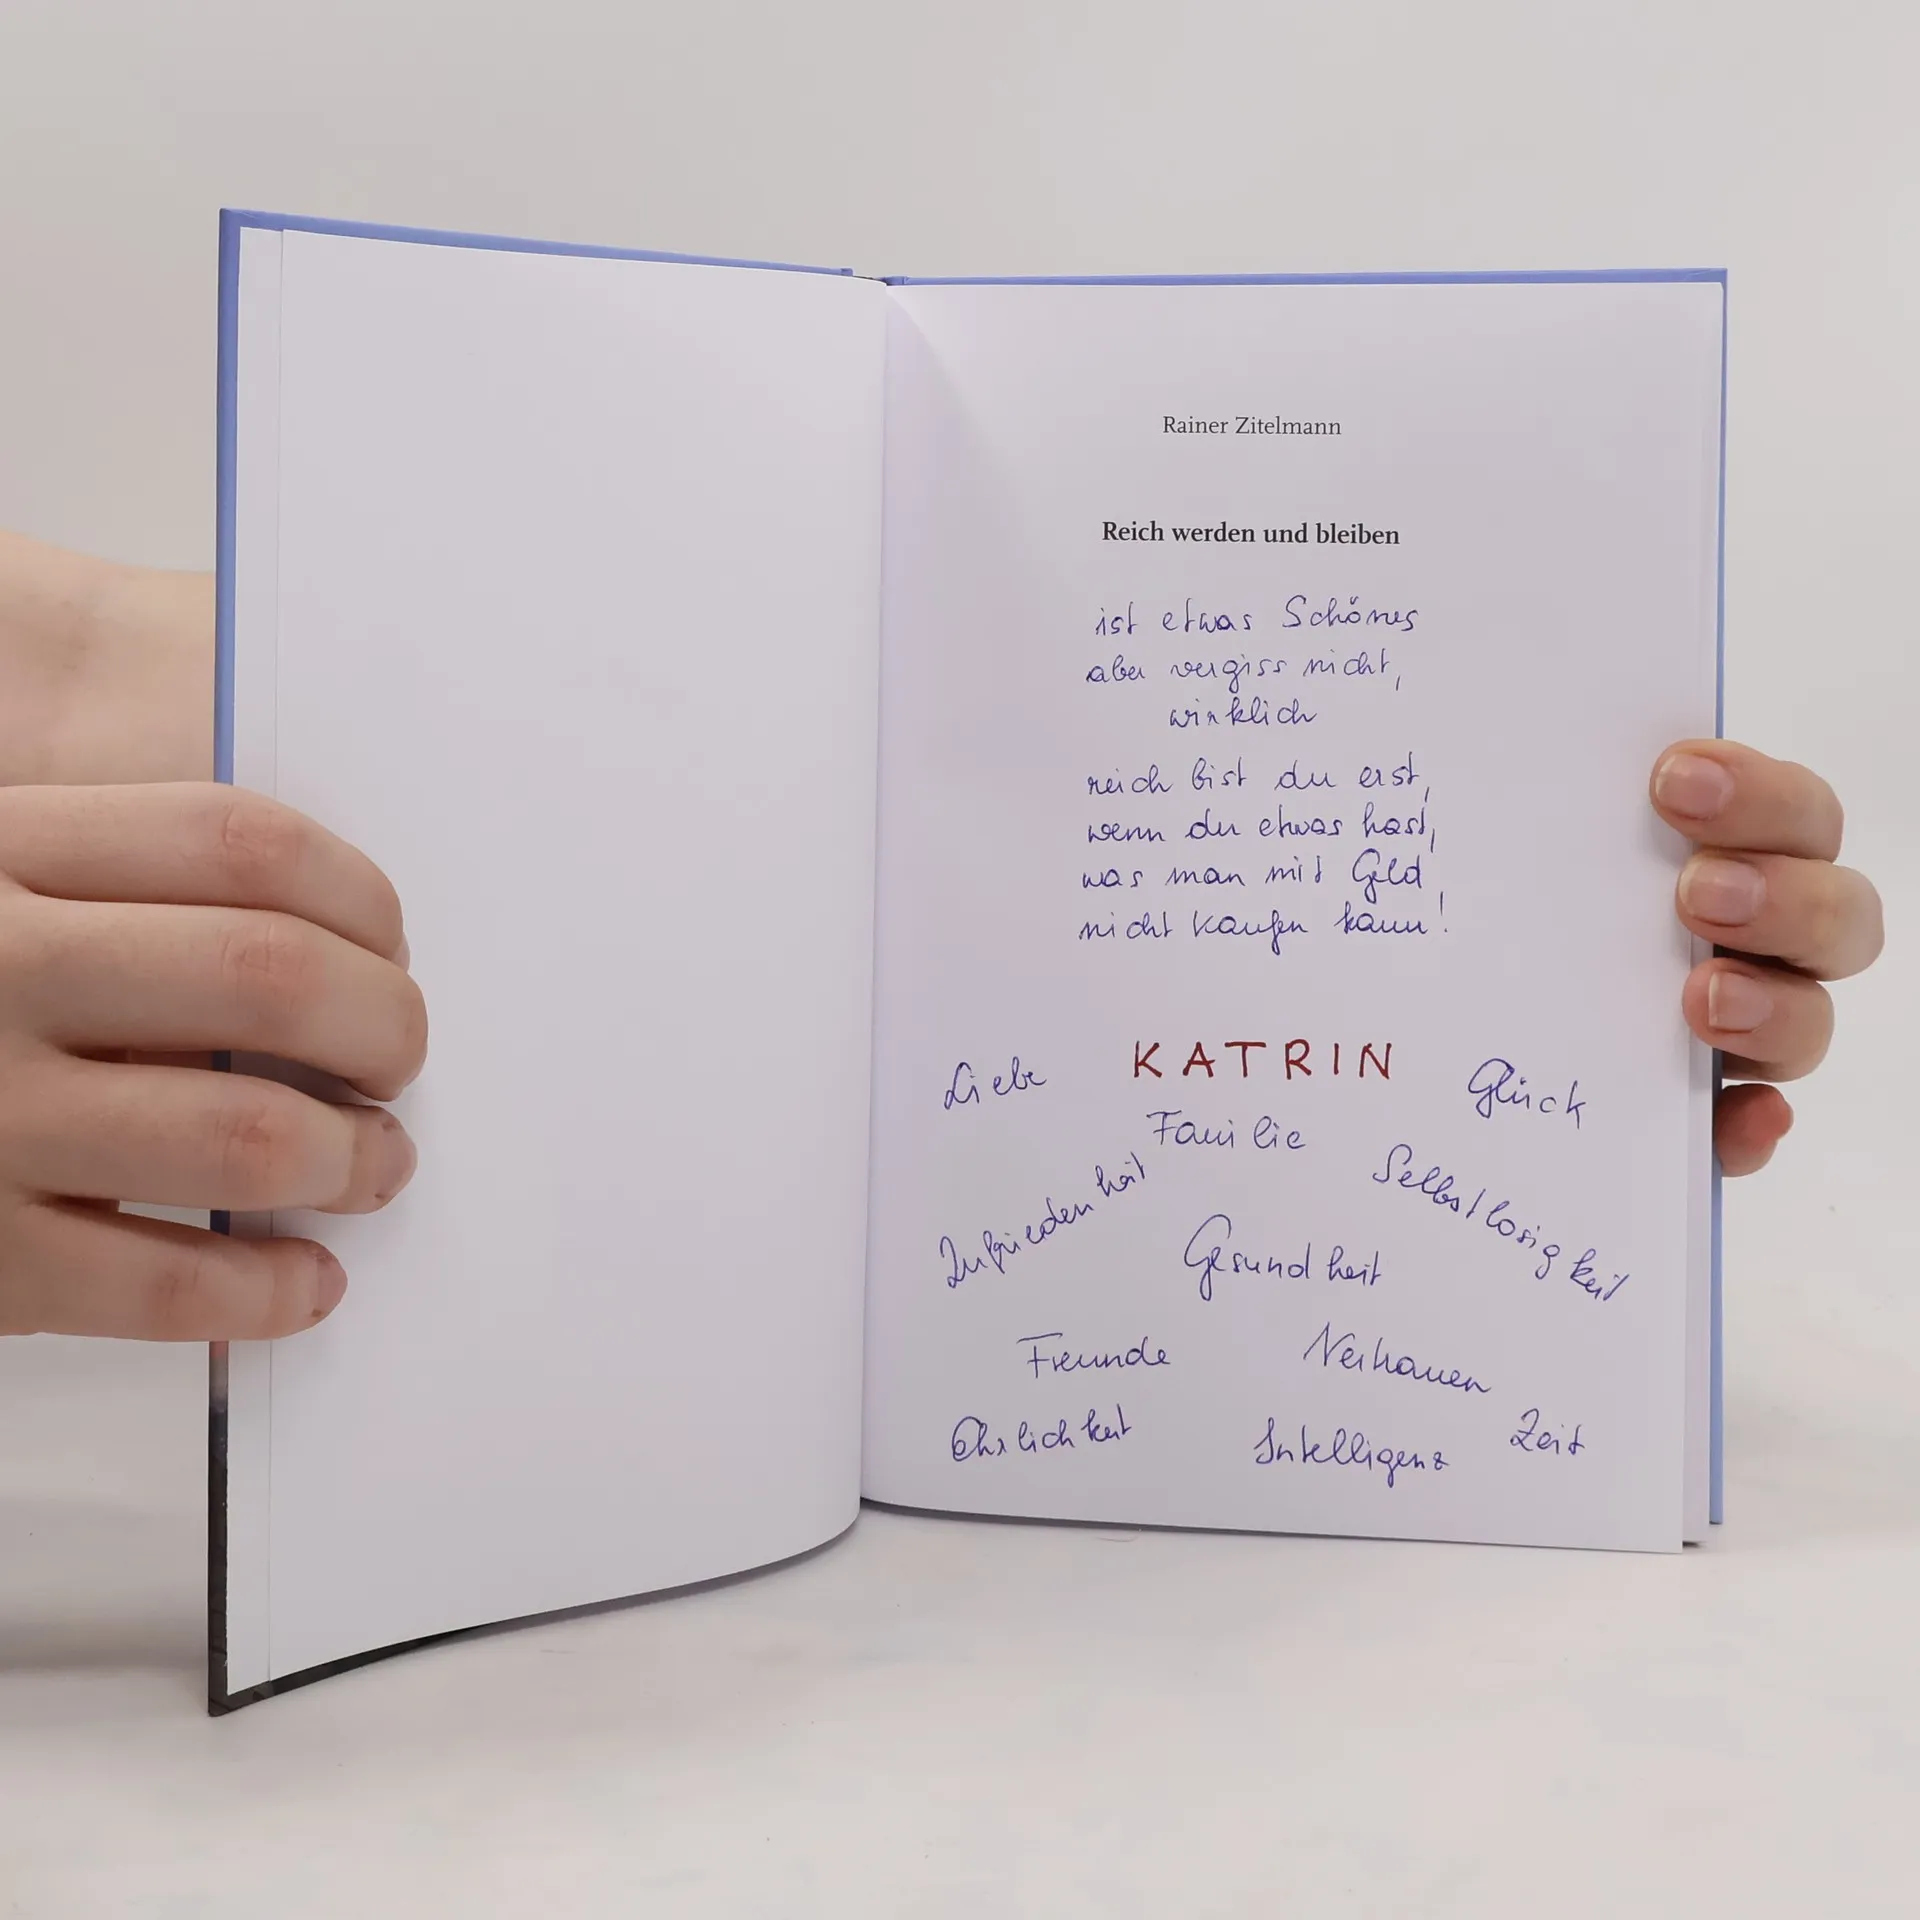 Rainer Zitelmann
Reich werden und bleiben
ist etwas Schönes
aber vergiss nicht,
wirklich
reich bist du erst,
wenn du etwas hast,
was man mit Geld
nicht kaufen kann!
KATRIN
Liebe
Glück
Familie
Zufriedenheit
Selbstlosigkeit
Gesundheit
Freunde
Vertrauen
Ehrlichkeit
Intelligenz
Zeit